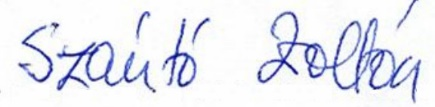 Szántó Zoltán